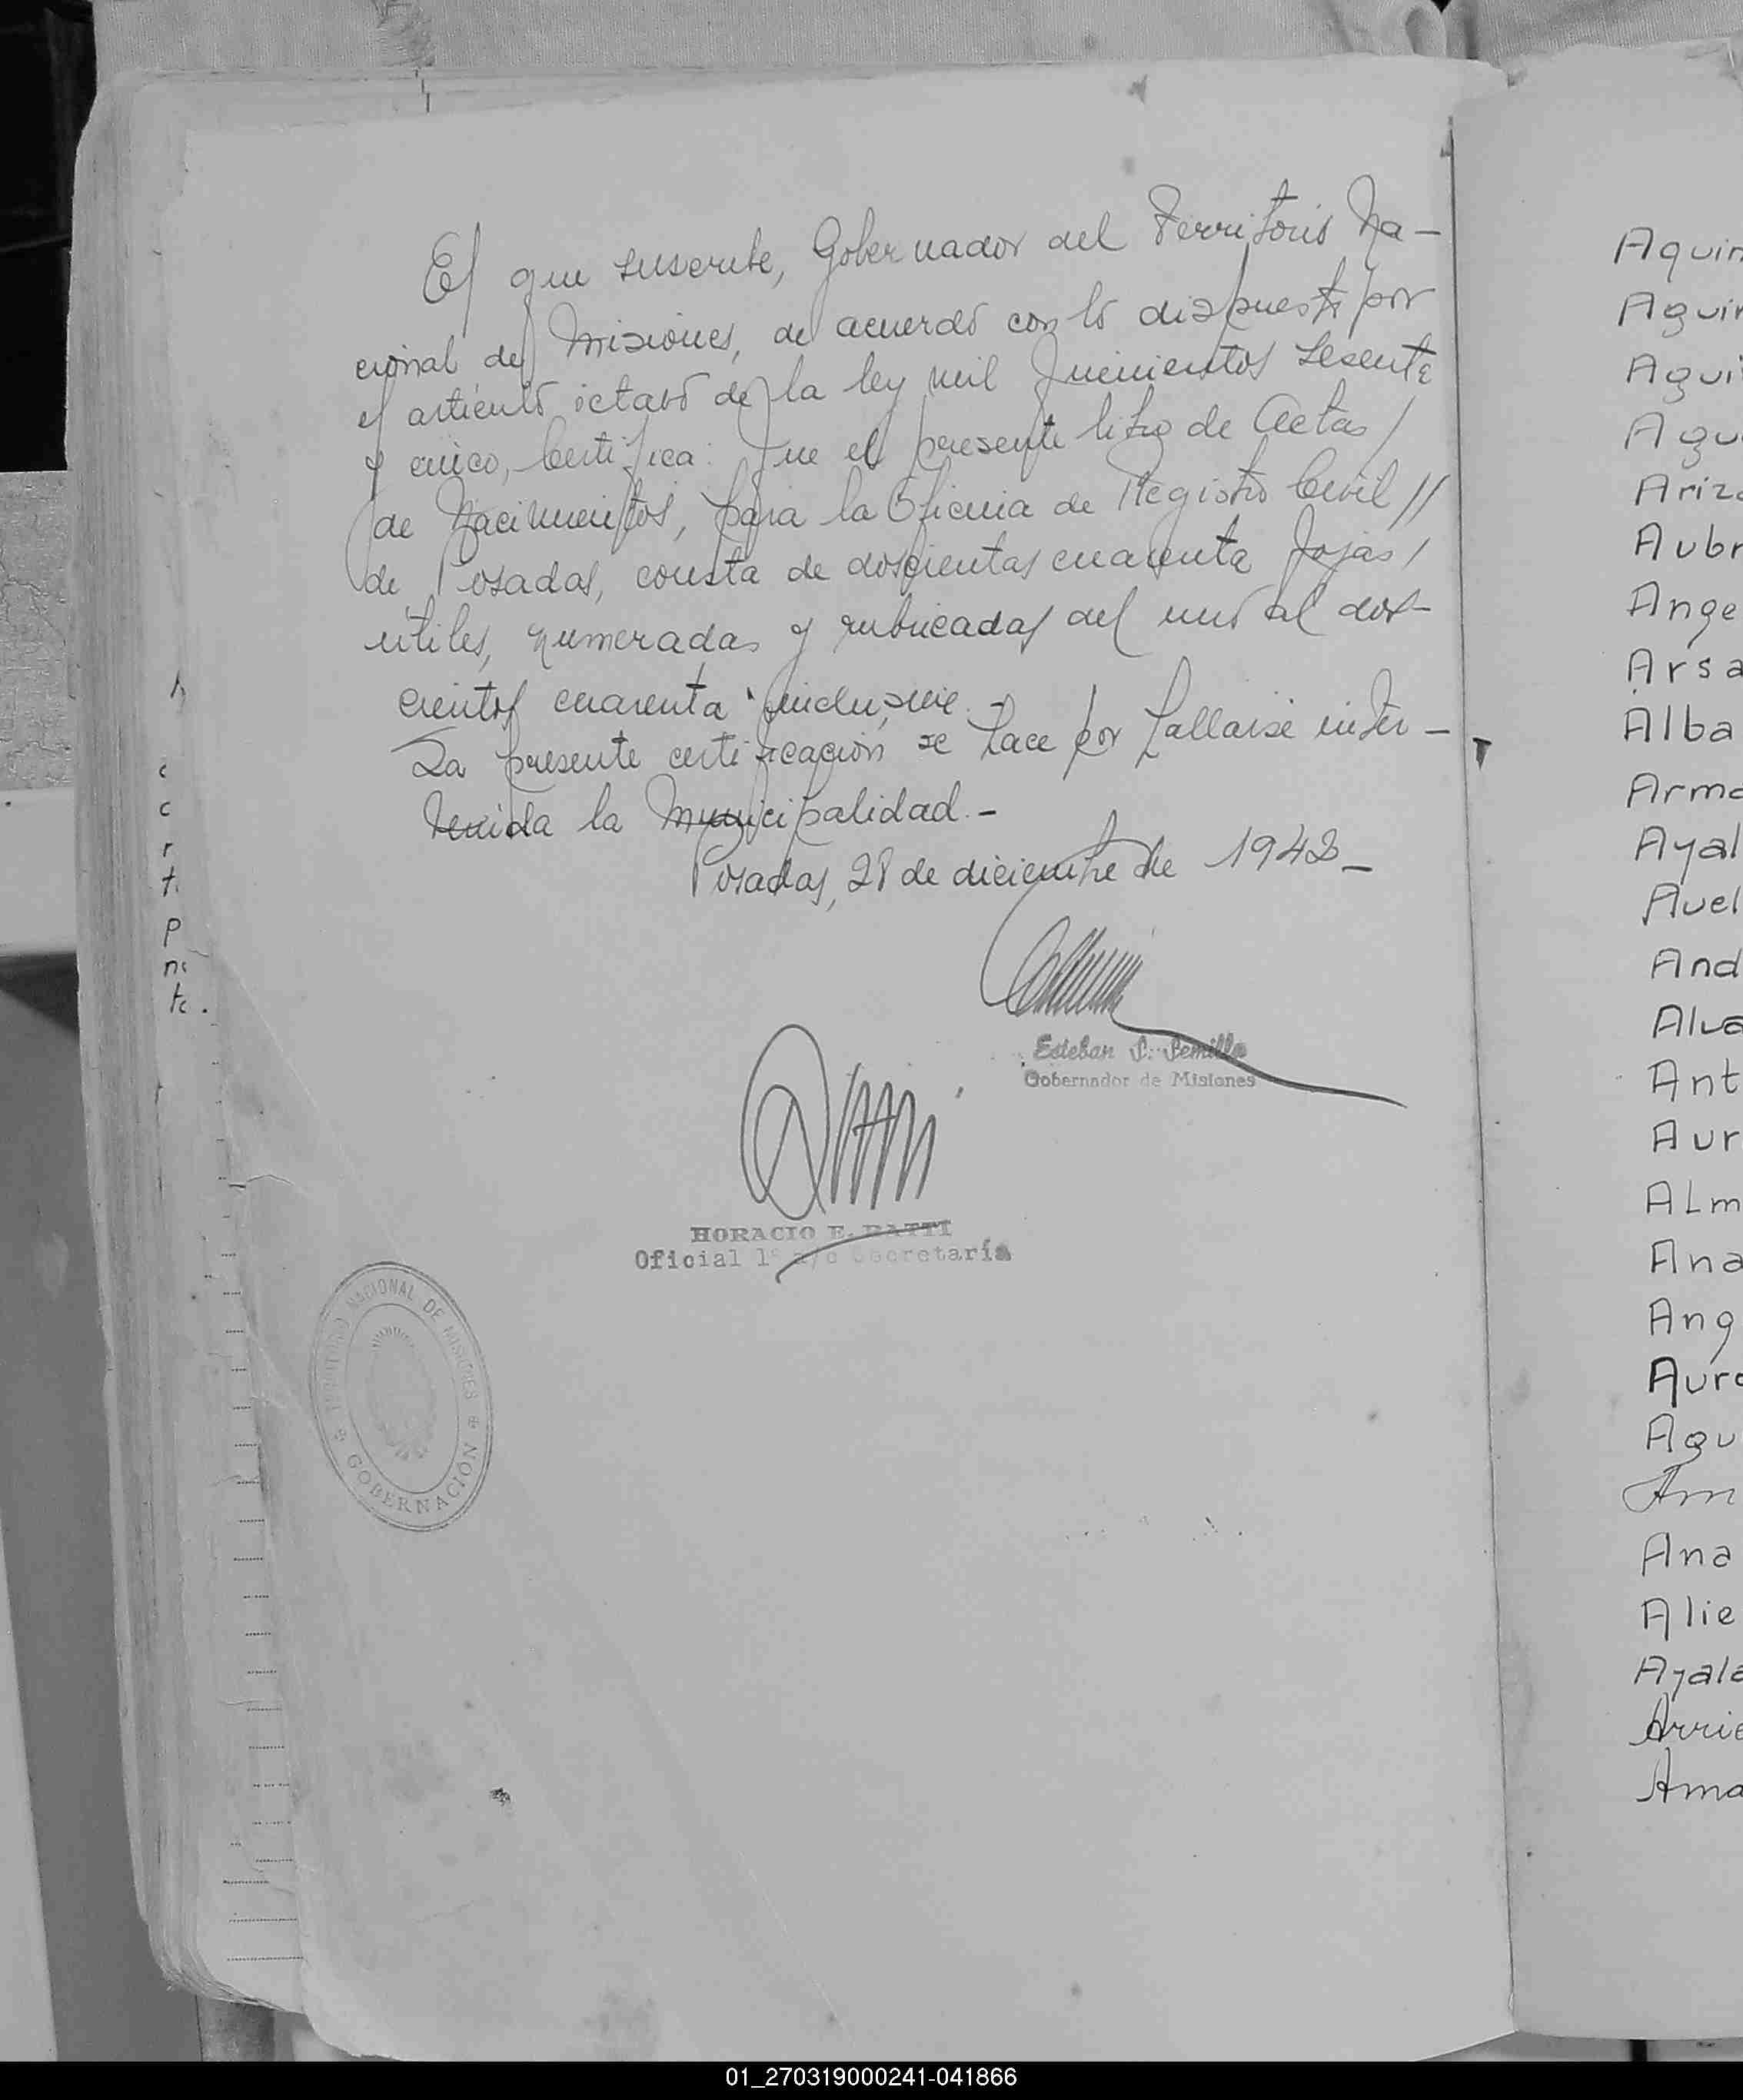 El que suscribe, Gobernador del Territorio Na-
cional de Misiones, de acuerdo con lo dispuesto por
el artículo octavo de la ley mil quinientos sesenta
y cinco, Certifica: Que el presente libro de Actas /
de Nacimientos, para la Oficina de Registro Civil //
de Posadas, consta de doscientas cuarenta fojas /
útiles, numeradas y rubricadas del uno al dos-
cientos cuarenta inclusive. -
La presente certificación se hace por hallarse inter-
venida la Municipalidad. -
Posadas, 28 de diciembre de 1942 -
Esteban
Gobernador de Misiones
HORACIO E. RATTI
Oficial 1º a/c Secretaría
TERRITORIO NACIONAL DE MISIONES
GOBERNACIÓN
Aquin
Aguir
Agui
Agu
Ariz
Aubr
Ange
Arsa
Alba
Arma
Ayal
Avel
And
Alva
Ant
Aur
ALm
Ana
Ang
Auro
Agu
Am
Ana
Alie
Ayala
Arrie
Ama
01_270319000241-041866